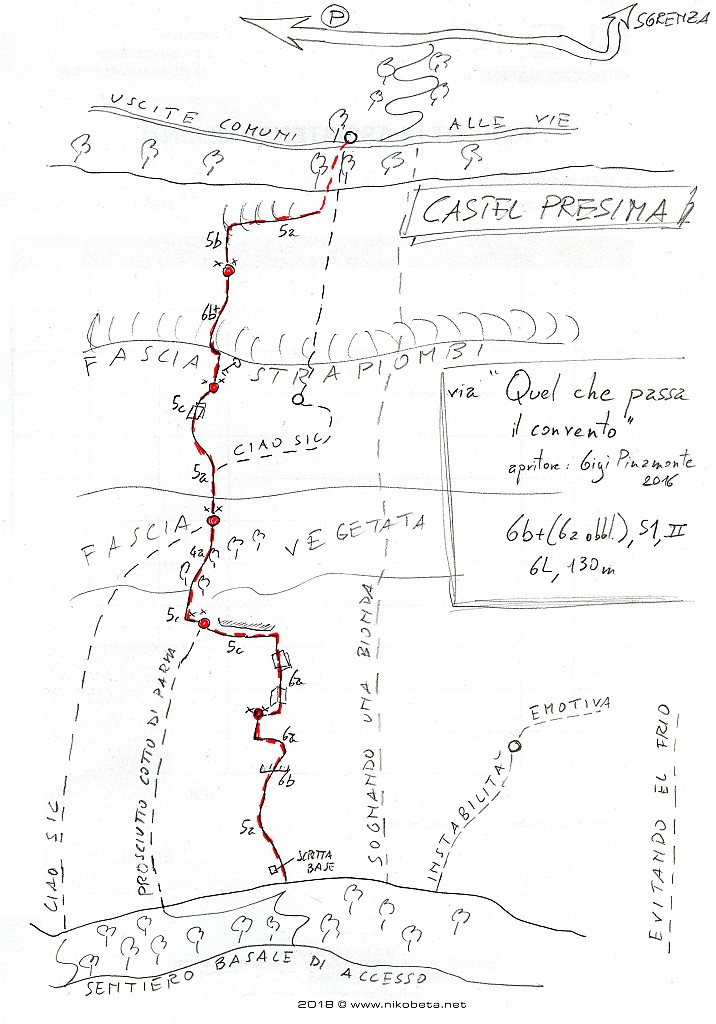 P
SGRENZA
USCITE COMUNI ALLE VIE
CASTEL PRESIMA
5a
5b
6b+
FASCIA STRAPIOMBI
via "Quel che passa
il convento"
apritore: Gigi Pinamonte
2016
6b+(6a obbl.), S1, II
6L, 130m
5c
CIAO SIC
5a
FASCIA VEGETATA
4a
5c
5c
6a
6a
6b
5a
SCRITTA
BASE
CIAO SIC
PROSCIUTTO COTTO DI PARMA
SOGNANDO UNA BIONDA
INSTABILITA' EMOTIVA
EVITANDO EL FRIO
SENTIERO BASALE DI ACCESSO
2018 © www.nikobeta.net